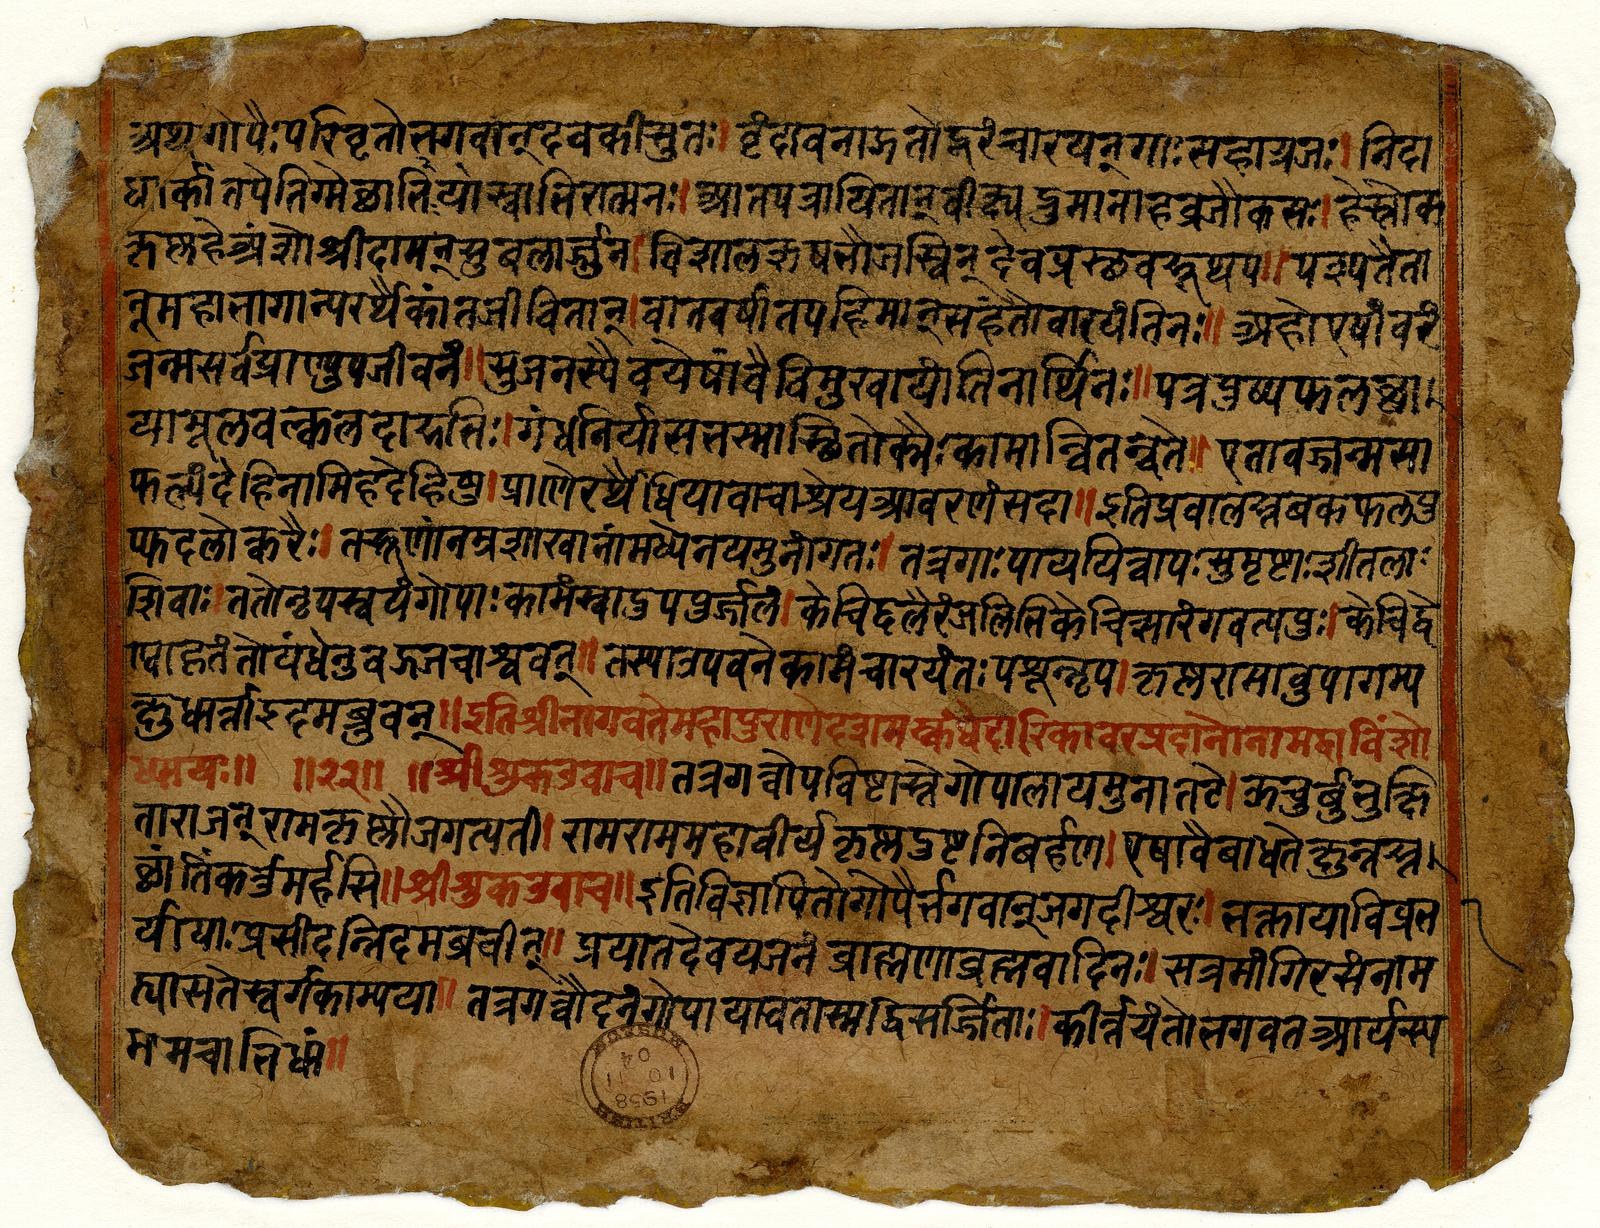 अथ गोपैः परिवृतो भगवान् देवकीसुतः। वृंदावनाद्गतो दूरं चारयन् गाः सहाग्रजः। निदा
घार्कातपे तिग्मे छाभिःयां स्वाभिरात्मनः। आतपत्रायितान् वीक्ष्य द्रुमानाह व्रजौकसः। हे स्तोक
कृष्ण हे अंशो श्रीदामन् सुबलार्ज्जुन। विशालऋषभौजस्विन् देवप्रस्थवरूथप॥ पश्यतैता
न् महाभागान् परार्थैकांतजीवितान्। वातवर्षातपहिमान् सहंतो वारयंति नः॥ अहो एषां वरं
जन्म सर्वप्राण्युपजीवनं॥ सुजनस्यैव येषां वै विमुखा यांति नार्थिनः॥ पत्रपुष्पफलछा।
यामूलवल्कलदारुभिः। गंधनिर्यासभस्मास्थितोक्मैः कामान् वितन्वते॥ एतावज्जन्मसा
फल्यं देहिनामिह देहिषु। प्राणैरर्थैर्धिया वाचा श्रेय आचरणं सदा॥ इति प्रवालस्तबकफलपु
ष्पदलोत्करैः। तरूणां नम्रशाखानां मध्येन यमुनां गतः॥ तत्र गाः पाययित्वापः सुमृष्टाः शीतलाः
शिवाः। ततो नृप स्वयं गोपाः कामं स्वादु पपुर्ज्जलं। केचिद्दलैरंजलिभिः केचित्सारंगवत्पपुः। केचिद्वे
ण्वाहृतं तोयं धेनुवद्गजवाश्ववत्॥ तस्या उपवने कामं चारयंतः पशून्नृप। कृष्णरामावुपागम्य
क्षुधार्त्ता इदमब्रुवन्॥ इति श्रीभागवते महापुराणे दशमस्कंधे दारिकावरप्रदानो नाम द्वाविंशो
ध्यायः॥ ॥२२॥ ॥श्रीशुक उवाच॥ तत्र गत्वोपविष्टास्ते गोपाला यमुनातटे। ऊचुर्ब्बुभुक्षि
ता राजन् रामकृष्णौ जगत्पती। राम राम महावीर्य कृष्ण दुष्टनिबर्हण। एषा वै बाधते क्षुन्नस्त।
छांतिं कर्त्तुमर्हसि॥ श्रीशुक उवाच॥ इति विज्ञापितो गोपैर्भगवान् जगदीश्वरः। भक्ताया विप्रभा
र्यायाः प्रसीदन्निदमब्रवीत्॥ प्रयात देवयजनं ब्राह्मणा ब्रह्मवादिनः॥ सत्रमांगिरसं नाम
ह्यासते स्वर्गकाम्यया॥ तत्र गत्वौदनं गोपा याचतास्मद्विसर्ज्जिताः। कीर्त्तयंतो भगवत आर्यस्य
मम चाभिधां॥
BRITISH MUSEUM
1958
10 11
04